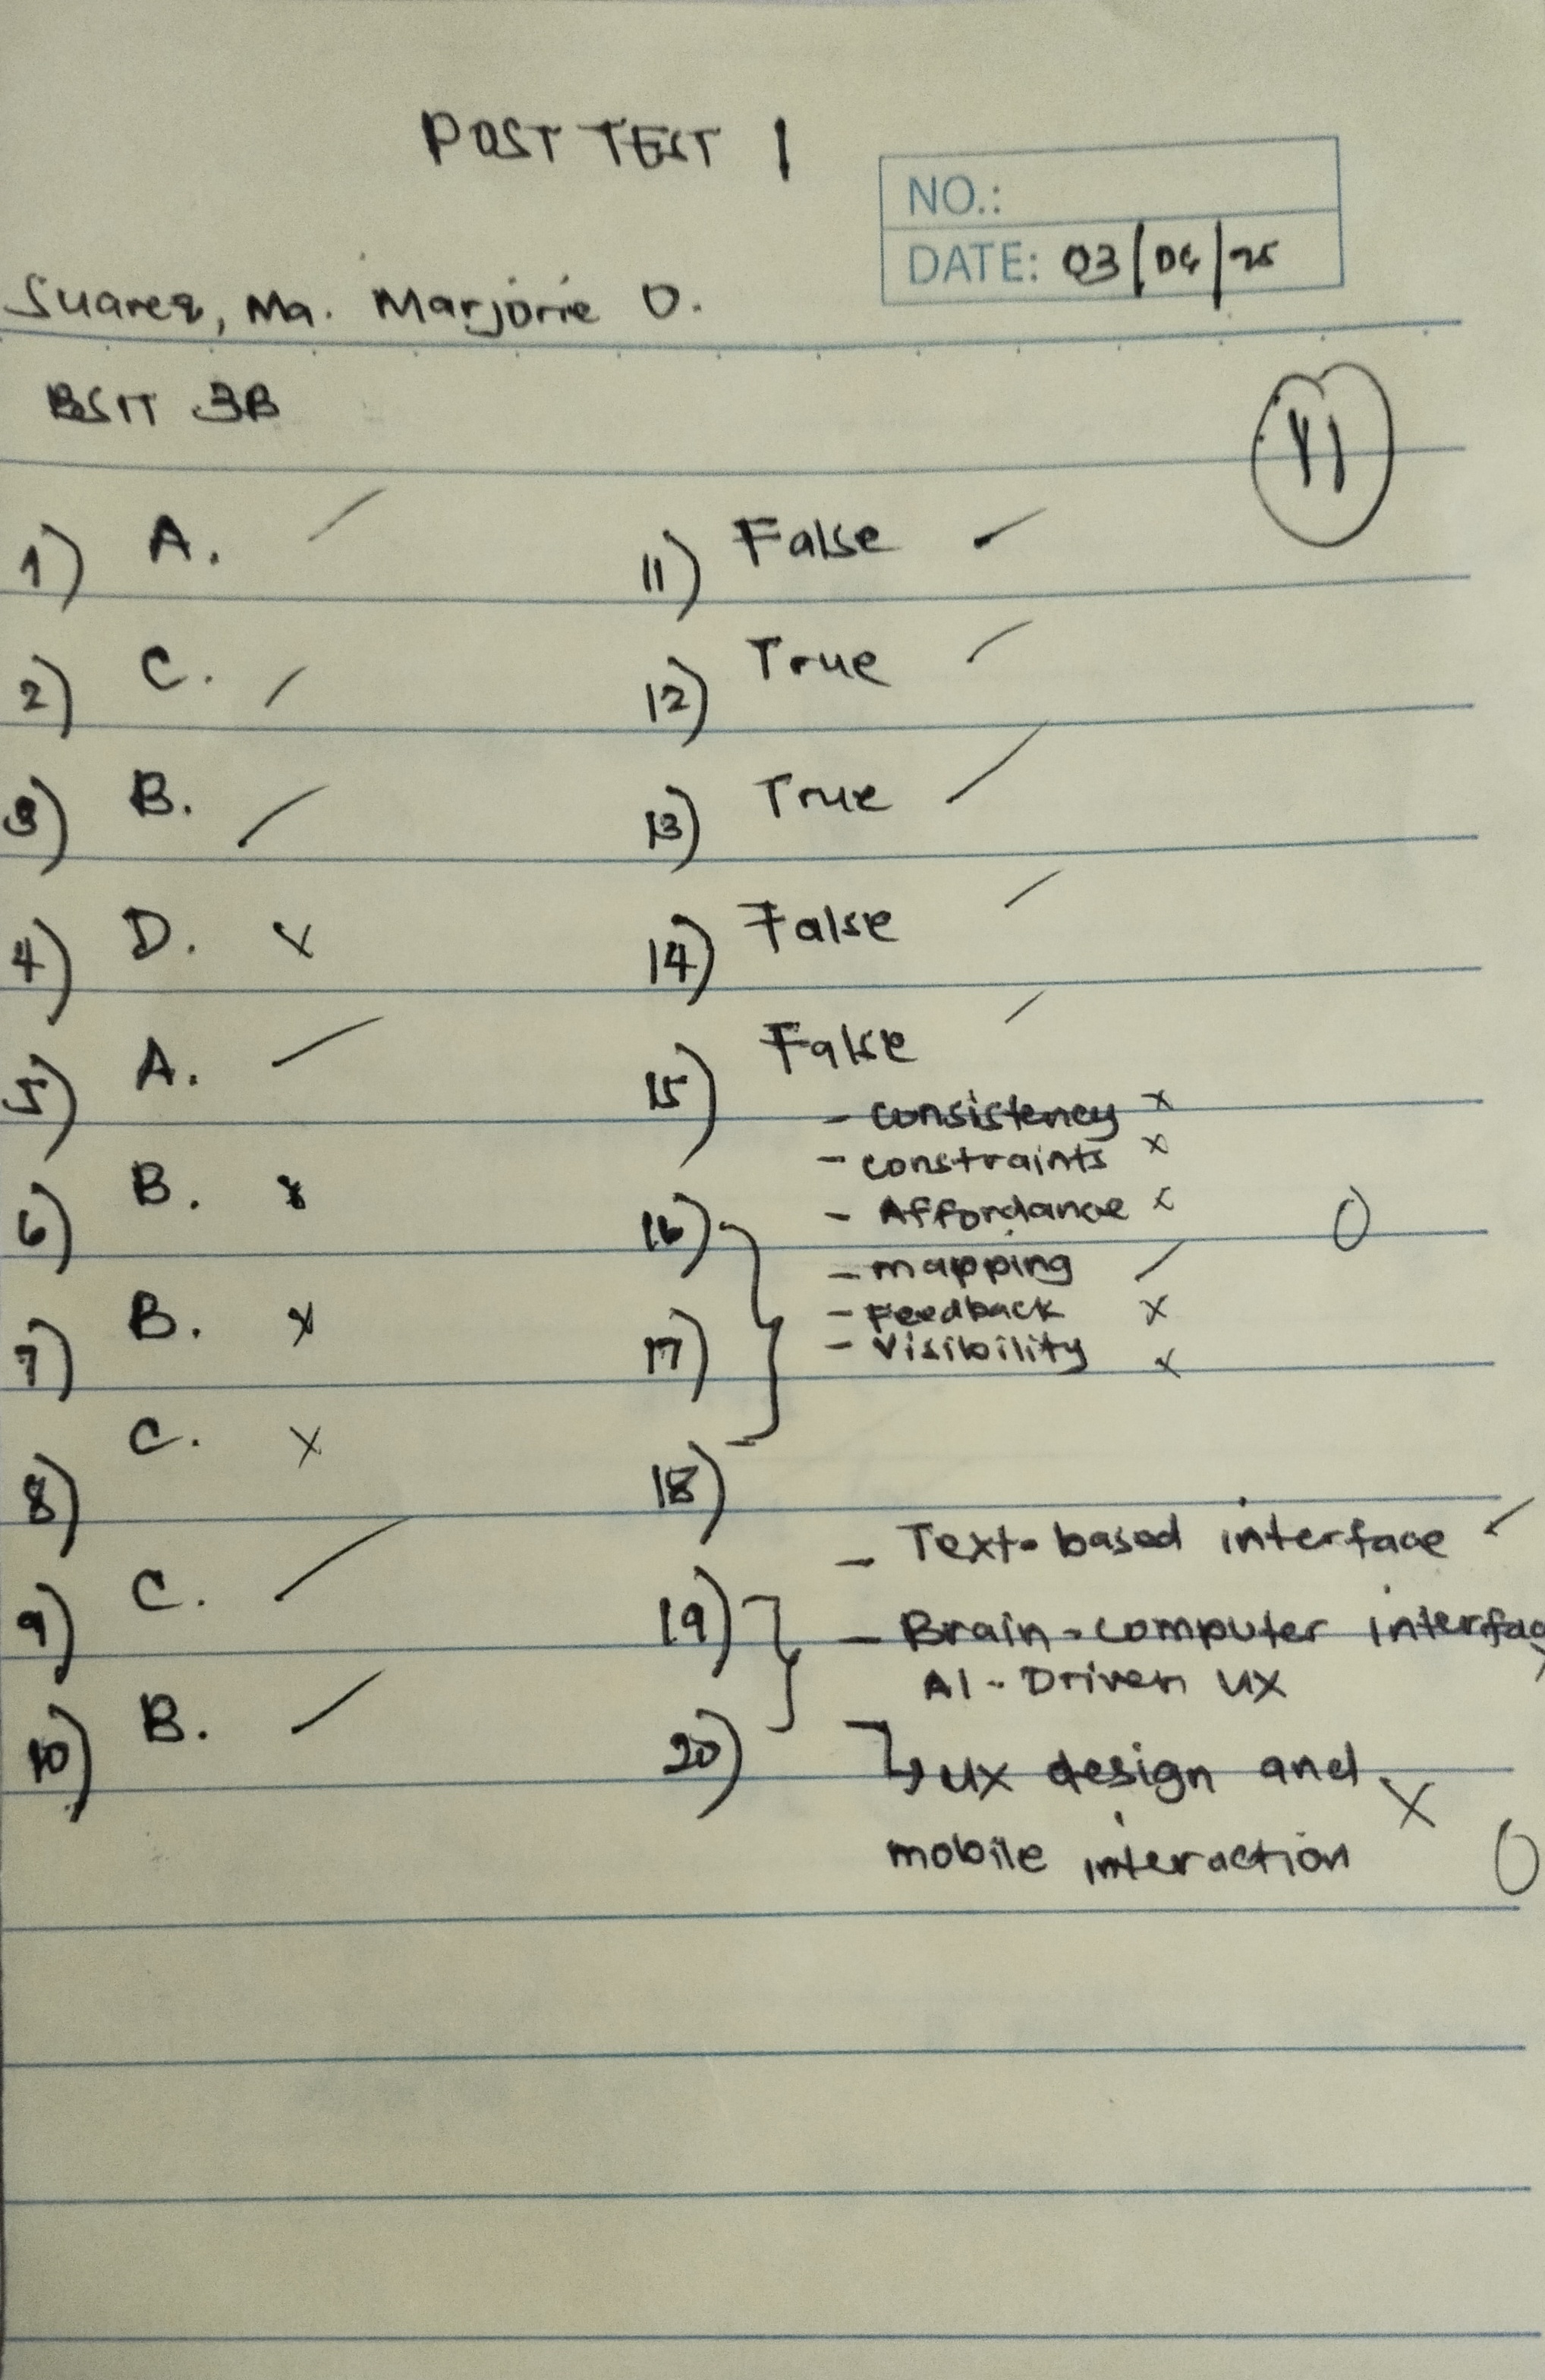 POST TEST 1
NO.:
DATE: 03/06/25
Suarez, Ma. Marjorie O.
BSIT 3B
11
1) A.
2) C.
3) B.
4) D. x
5) A.
6) B. x
7) B. x
8) C. x
9) C.
10) B.
11) False
12) True
13) True
14) False
15) False
16)
17)
18)
- consistency x
- constraints x
- Affordance x
0
- mapping
- Feedback x
- Visibility x
19)
20)
- Text-based interface
- Brain-computer
AI-Driven UX
UX design and x
mobile interaction
0